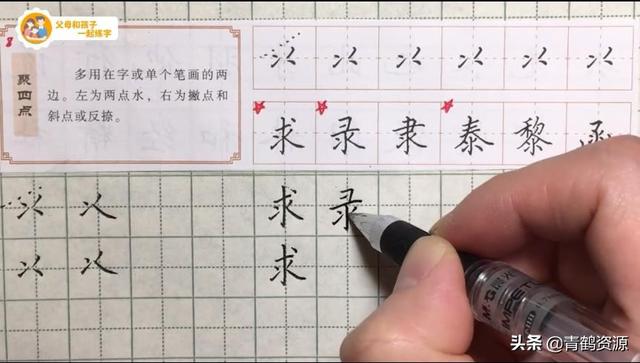 父母和孩子
一起练字
聚四点
多用在字或单个笔画的两
边。左为两点水，右为撇点和
斜点或反捺。
求 录 隶 泰 黎 函
求 录
求
M&G
头条 @青鹤资源